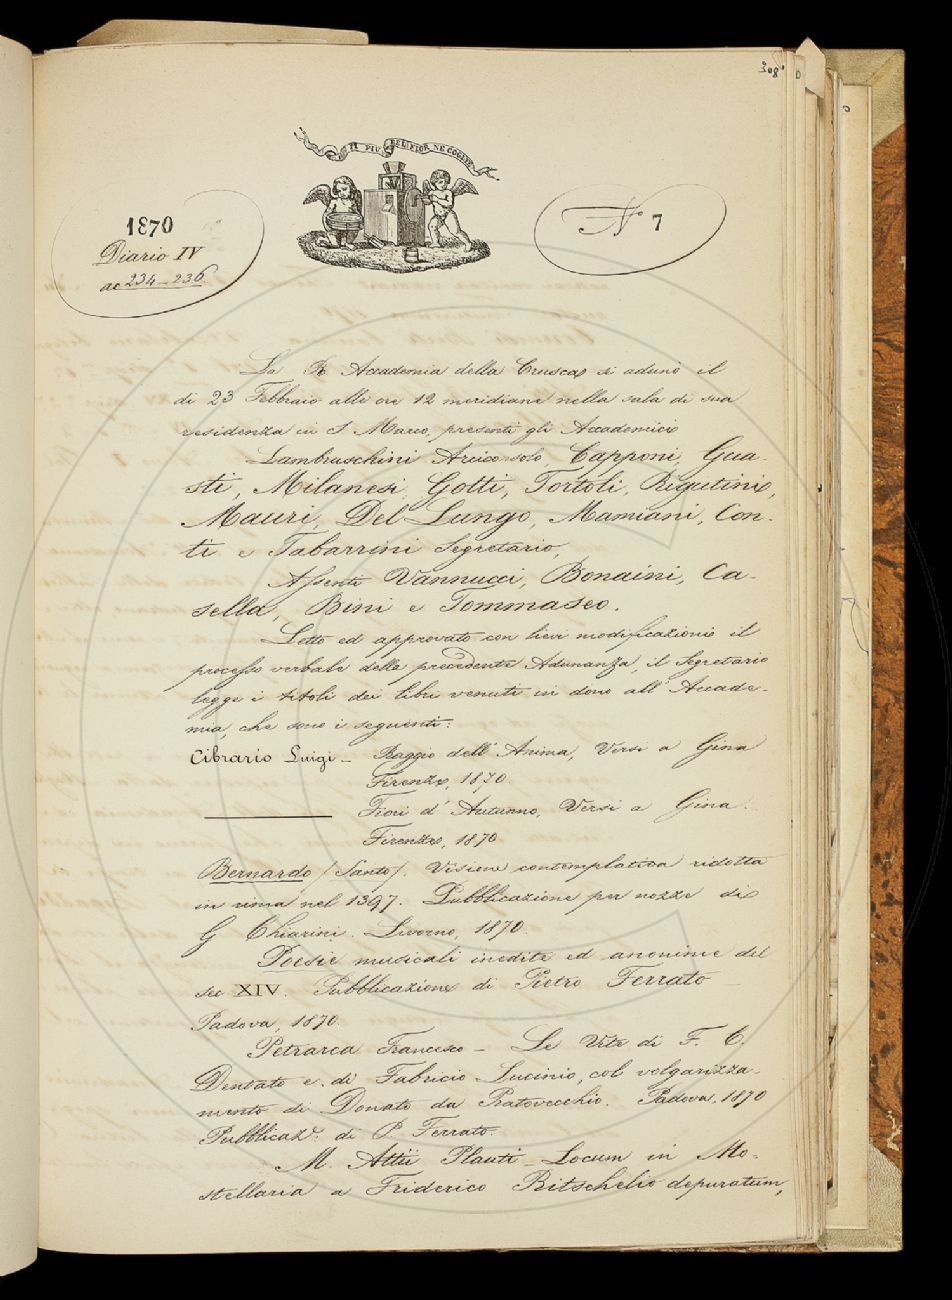 308
IL PIU BEL FIOR NE COGLIE
1870
Diario IV
ac 234-236
N° 7
La R. Accademia della Crusca si adunò il
dì 23 Febbraio alle ore 12 meridiane nella sala di sua
residenza in S. Marco, presenti gli Accademici
Lambruschini Arciconsolo, Capponi, Gua-
sti, Milanesi, Gotti, Tortoli, Rigutini,
Mauri, Del Lungo, Mamiani, Con-
ti e Tabarrini Segretario,
Assenti Vannucci, Bonaini, Ca-
sella, Bini e Tommaseo.
Letto ed approvato con lievi modificazioni il
processo verbale della precedente Adunanza, il Segretario
legge i titoli dei libri venuti in dono all'Accade-
mia, che sono i seguenti:
Cibrario Luigi - Raggio dell'Anima, Versi a Gina
Firenze, 1870
Fiori d'Autunno, Versi a Gina.
Firenze, 1870
Bernardo (Santo). Visione contemplativa ridotta
in rima nel 1397. Pubblicazione per nozze di
G Chiarini. Livorno, 1870.
Poesie musicali inedite ed anonime del
sec XIV. Pubblicazione di Pietro Ferrato -
Padova, 1870.
Petrarca Francesco - Le Vite di F. C.
Dentato e di Fabricio Lucinio, col volgarizza-
mento di Donato da Pratovecchio. Padova, 1870
Pubblicaz.e di P. Ferrato.
M. Attii Plauti - Locum in Mo-
stellaria a Friderico Ritschelio depuratum,